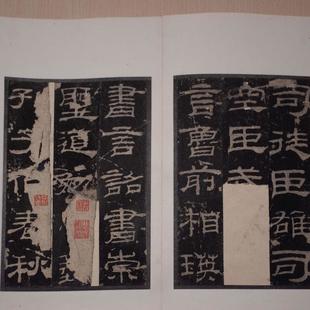 司徒臣雄司
空臣戒
言魯前相瑛
書言詔書崇
聖道勉藝
子作春秋